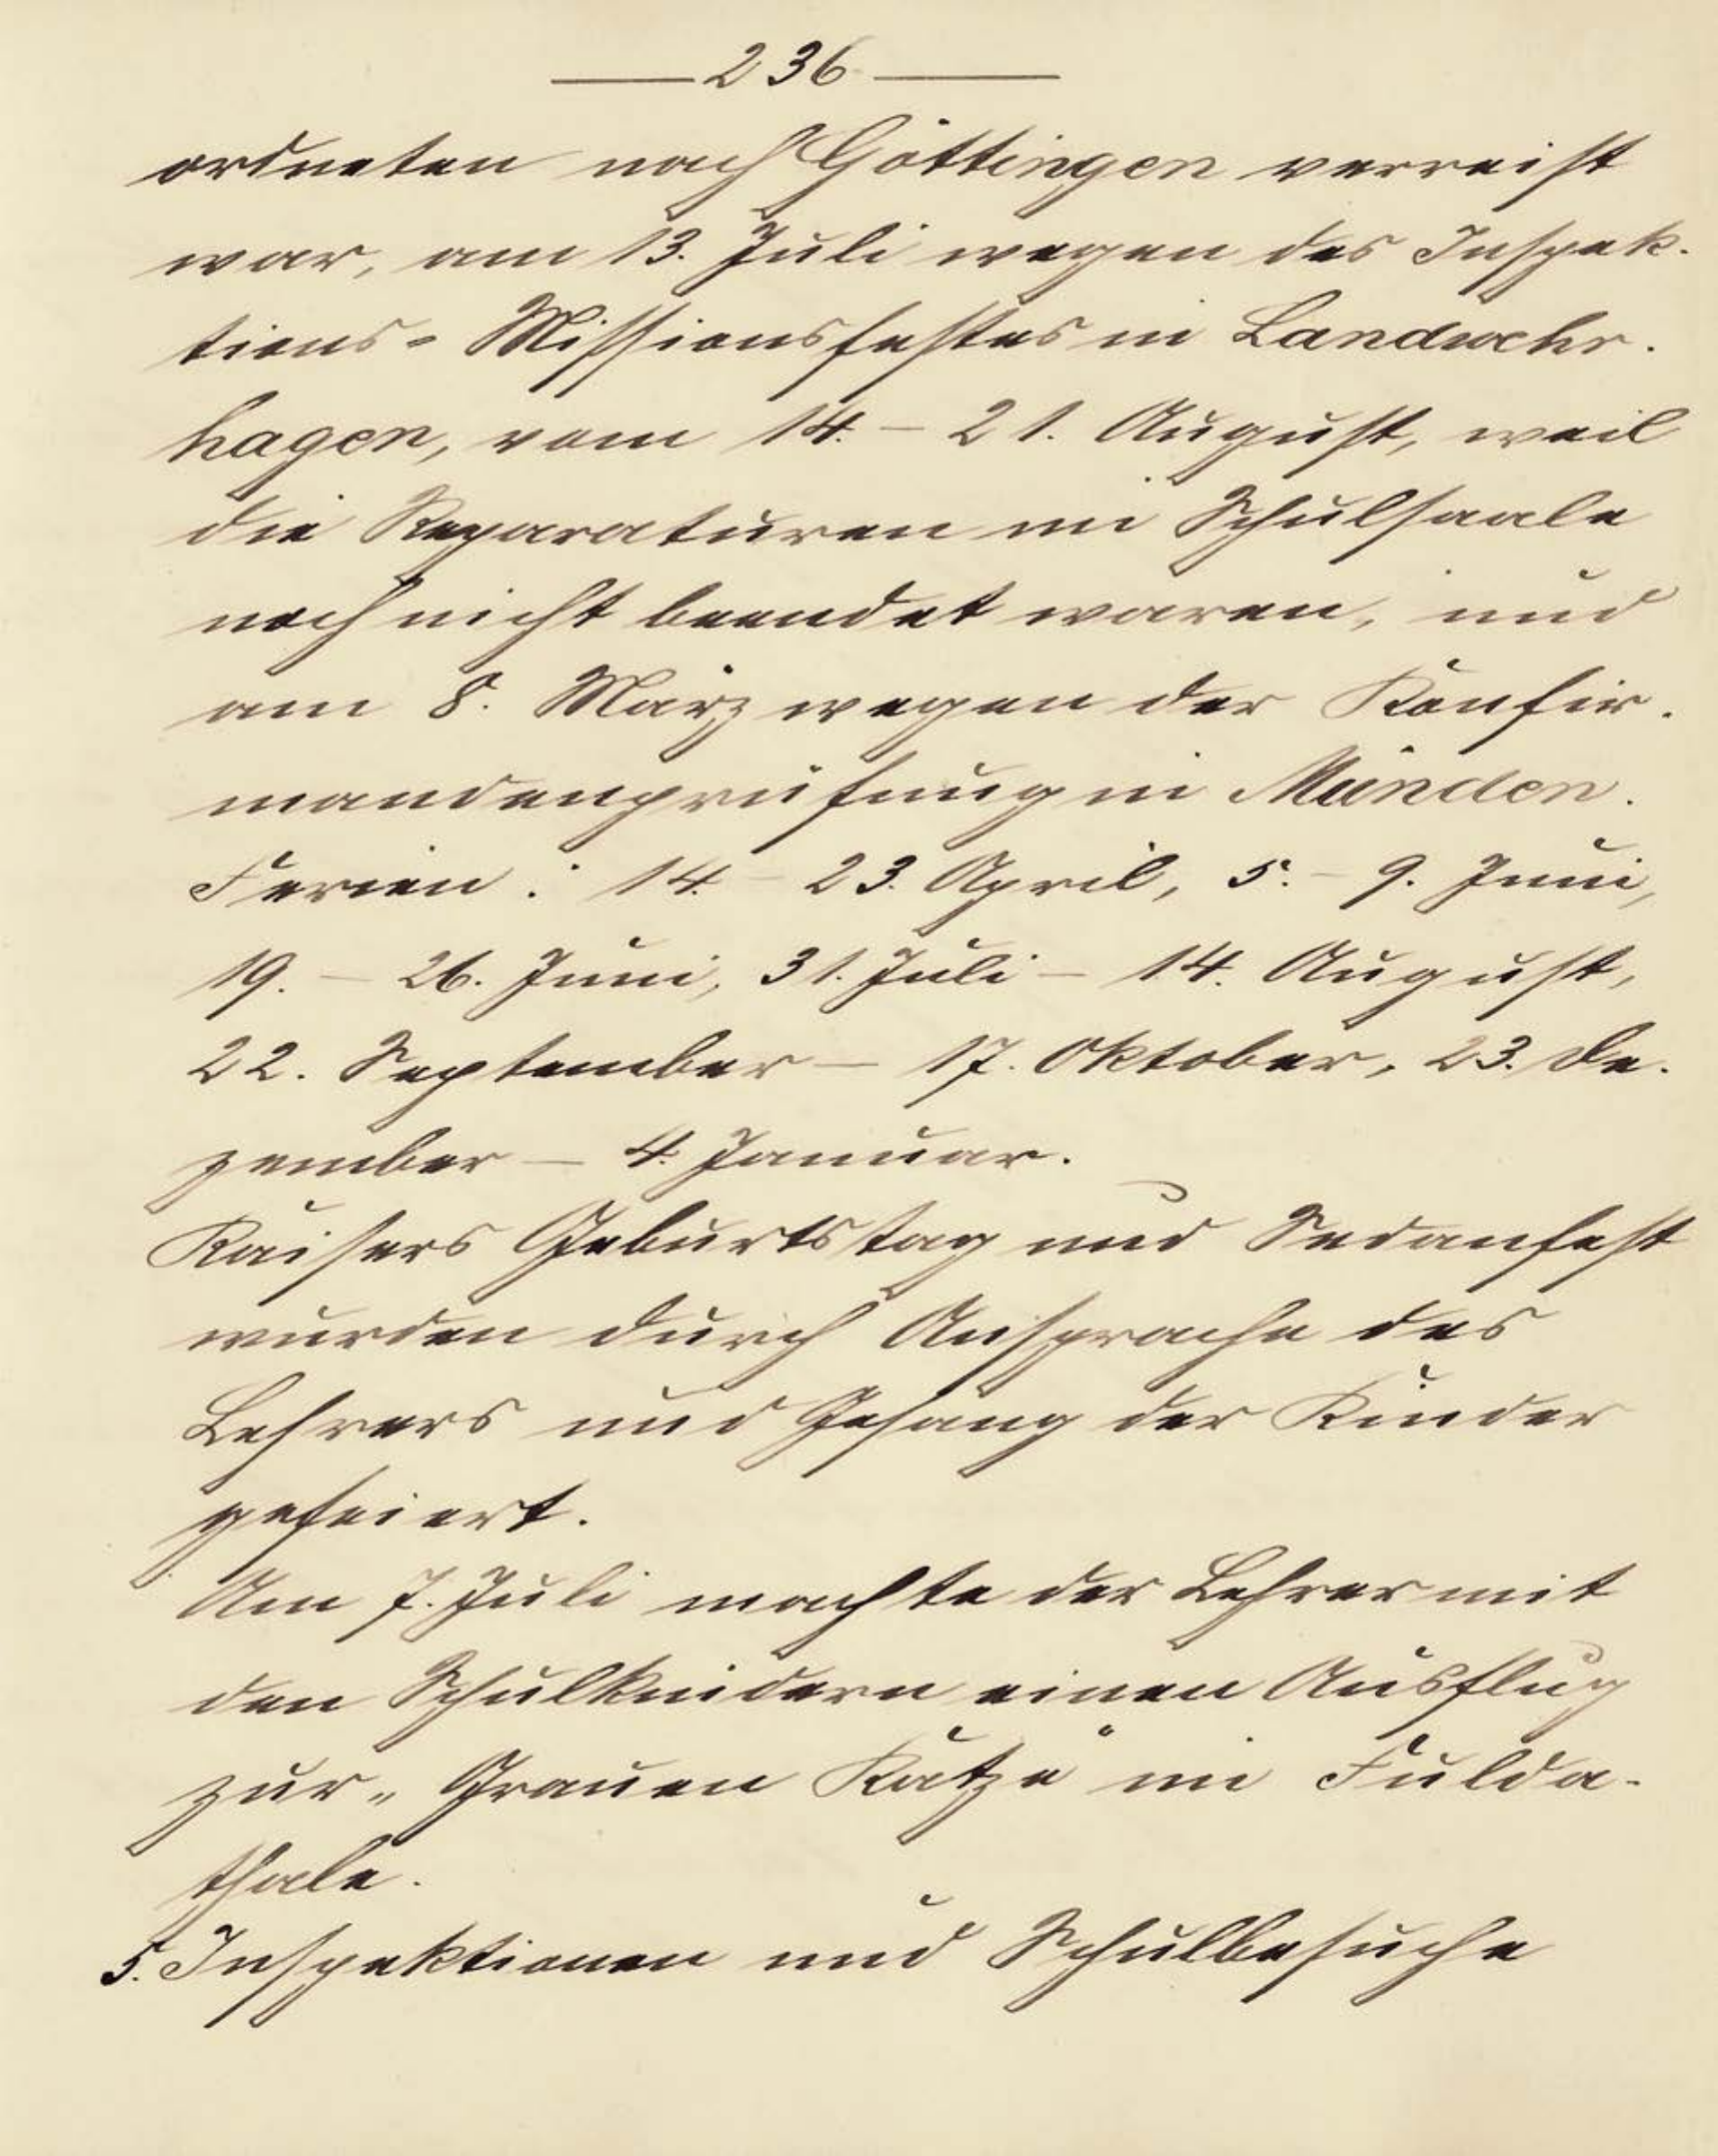 — 236 —
ordneten nach Göttingen verreist
war, am 13. Juli wegen des Inspek-
tions-Missionsfestes in Landwehr-
hagen, vom 14. – 21. August, weil
die Reparaturen im Schulsaale
noch nicht beendet waren, und
am 8. März wegen der Konfir-
mandenprüfung in Münden.
Ferien: 14. – 23. April, 5. – 9. Juni,
19. – 26. Juni, 31. Juli – 14. August,
22. September – 17. Oktober, 23. De-
zember – 4. Januar.
Kaisers Geburtstag und Sedanfest
wurden durch Ansprache des
Lehrers und Gesang der Kinder
gefeiert.
Am 7. Juli machte der Lehrer mit
den Schulkindern einen Ausflug
zur „Grauen Katze" im Fulda-
thale.
5. Inspektionen und Schulbesuche